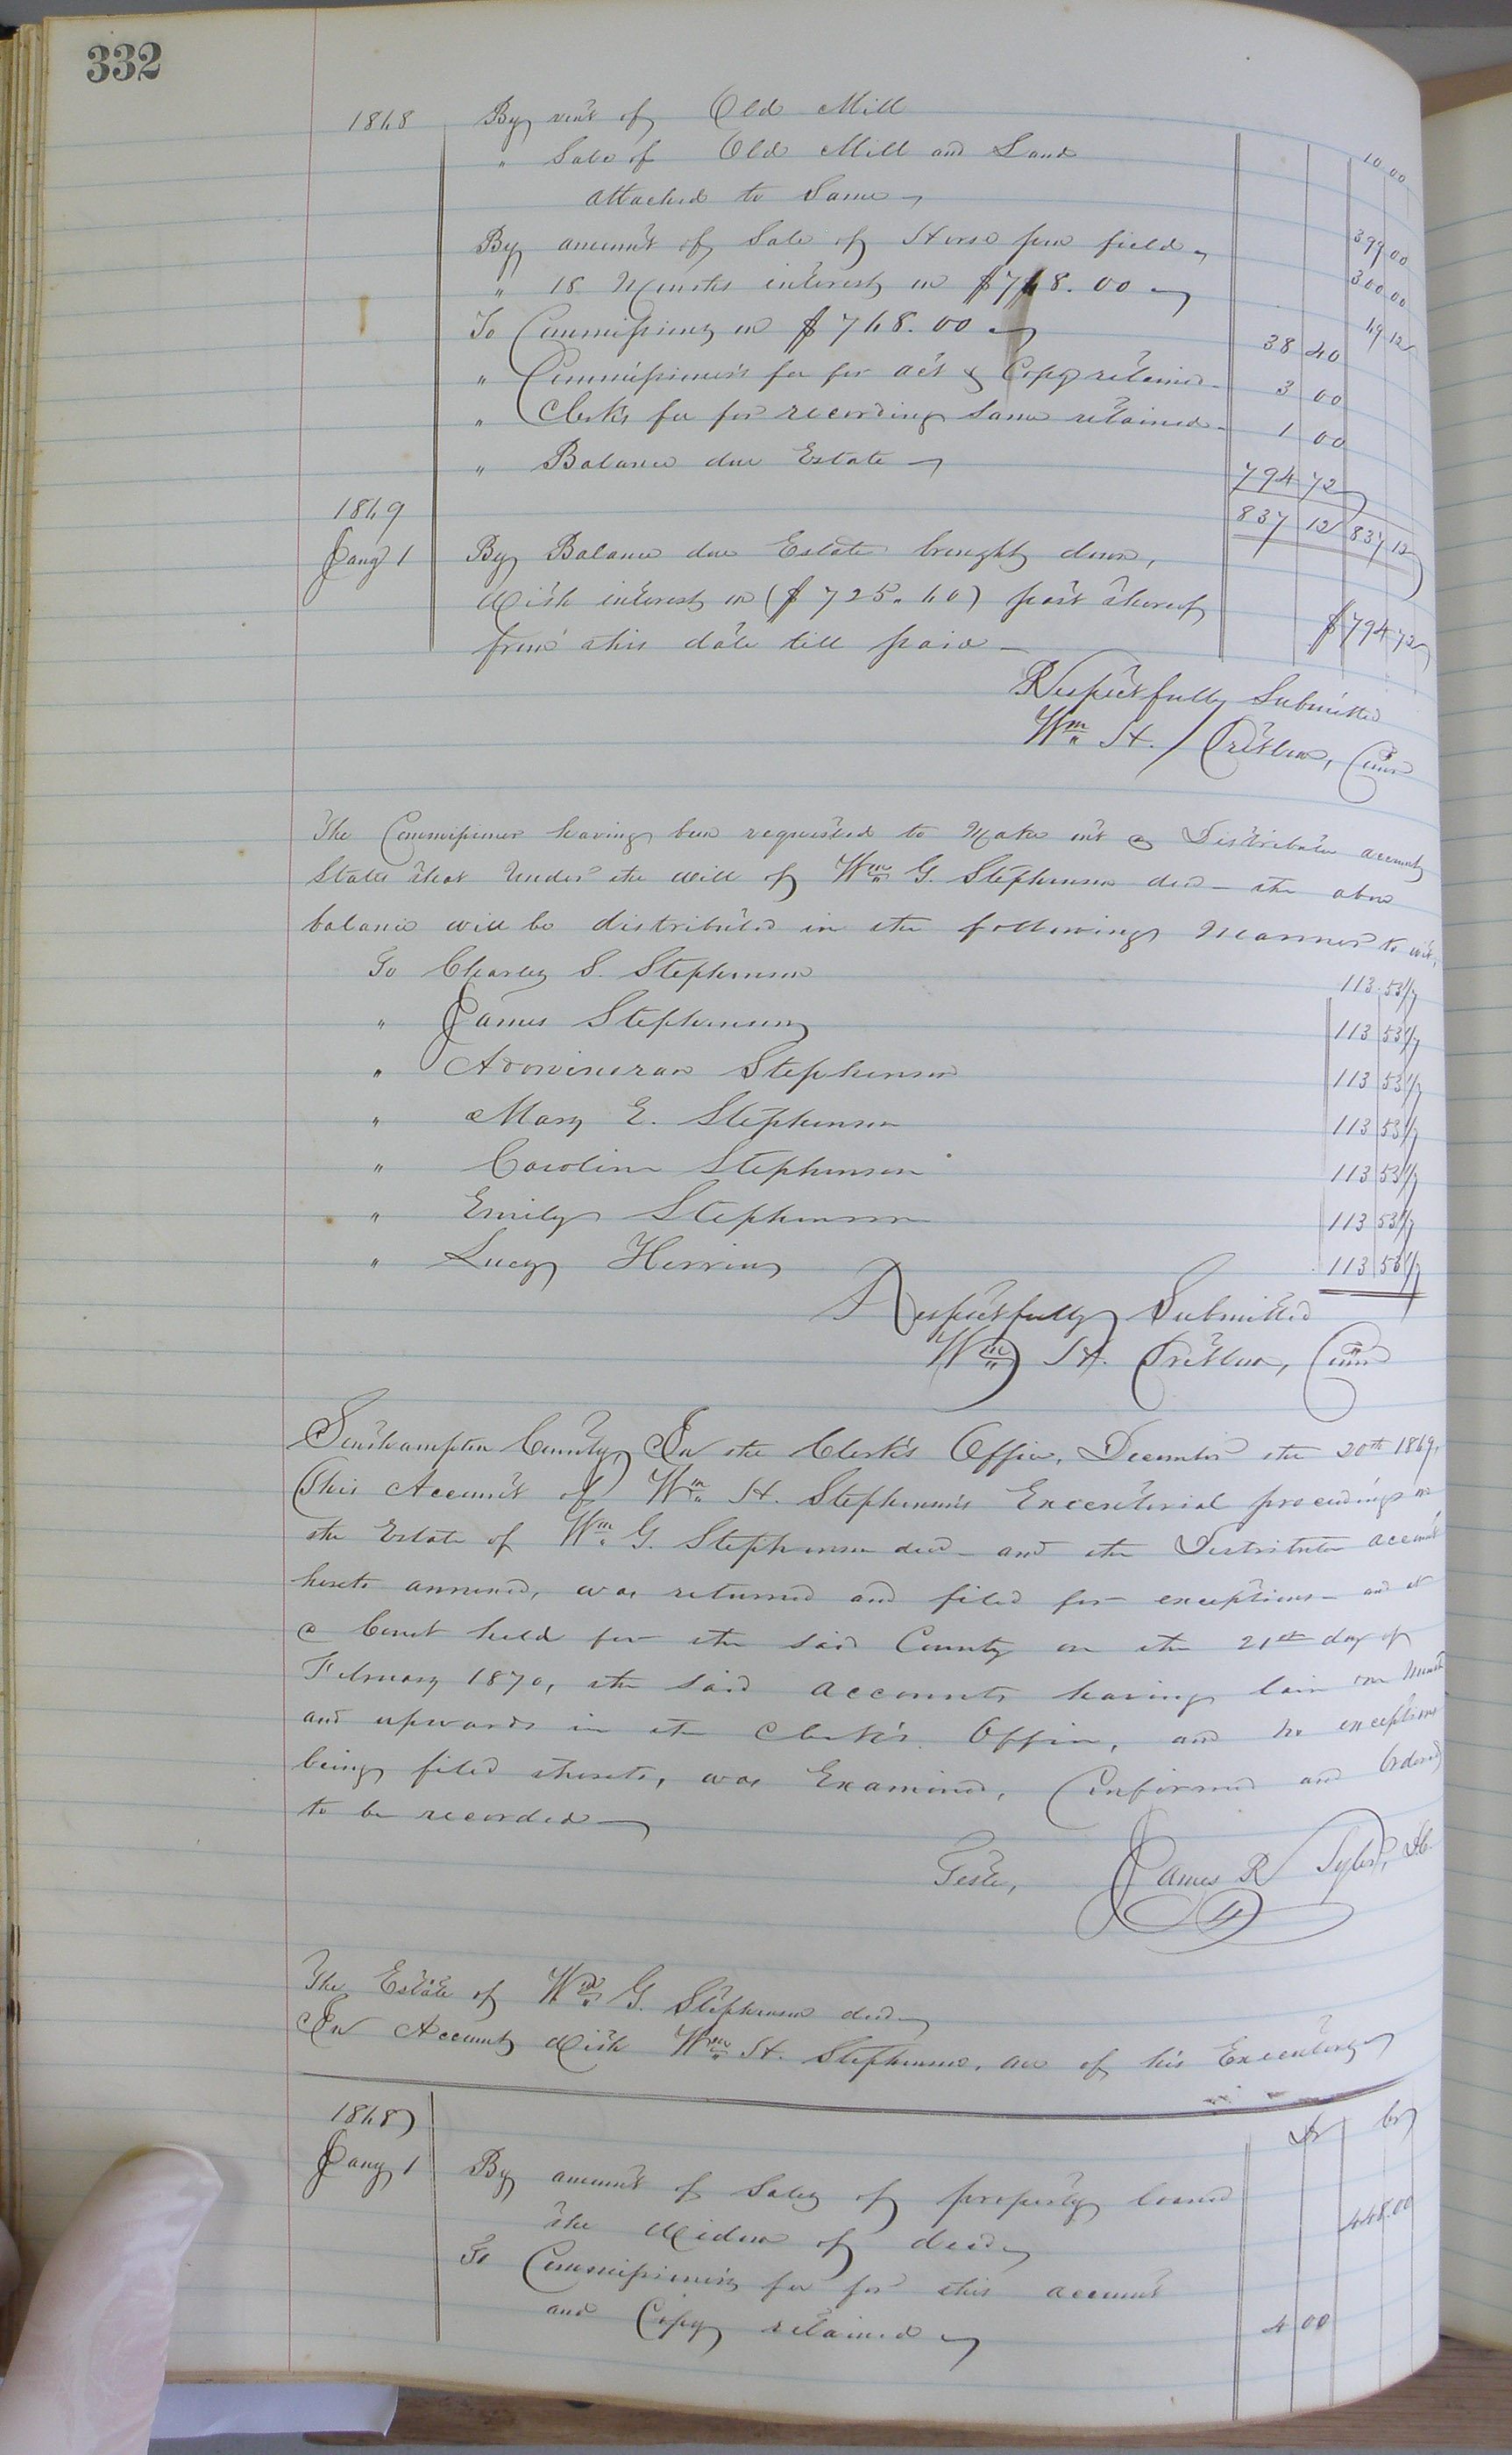 332
1868 By rent of Old Mill 10 00
" Sale of Old Mill and Land
attached to Same 399 00
By amount of Sale of Horse pen field 300 00
" 18 Months interest on $768.00 69 12
To Commissions on $768.00 38 40
" Commissioner's fee for act & Copy retained 3 00
" Clerk's fee for recording same retained 1 00
" Balance due Estate 794 72
1869 837 12 837 12
Jany 1 By Balance due Estate brought down,
With interest on ($725.60) part thereof
from this date till paid $794 72
Respectfully Submitted
Wm H. Comr
The Commissioner having been requested to make out a Distributee account
States that under the will of Wm G. Stephenson decd the above
balance will be distributed in the following manner to wit,
To Charles S. Stephenson 113 53 1/7
" James Stephenson 113 53 1/7
" Stephenson 113 53 1/7
" Mary E. Stephenson 113 53 1/7
" Caroline Stephenson 113 53 1/7
" Emily Stephenson 113 53 1/7
" Lucy Herring 113 53 1/7
Respectfully Submitted
Wm H. Comr
Southampton County, In the Clerk's Office, December the 20th 1869,
This Account of Wm H. Stephenson's Executorial proceedings on
the Estate of Wm G. Stephenson decd and the Distributee account
hereto annexed, was returned and filed for exceptions and at
a Court held for the said County on the 21st day of
February 1870, the said accounts having lain one month
and upwards in the Clerk's Office, and no exceptions
being filed thereto, was Examined, Confirmed and Ordered
to be recorded
Teste, James R Tyler, D.C.
The Estate of Wm G. Stephenson decd
In Account With Wm H. Stephenson, one of his Executors
1868 Dr Cr
Jany 1 By amount of Sales of property loaned
the Widow of decd 448.00
To Commissioner's fee for this account
and Copy retained 4 00